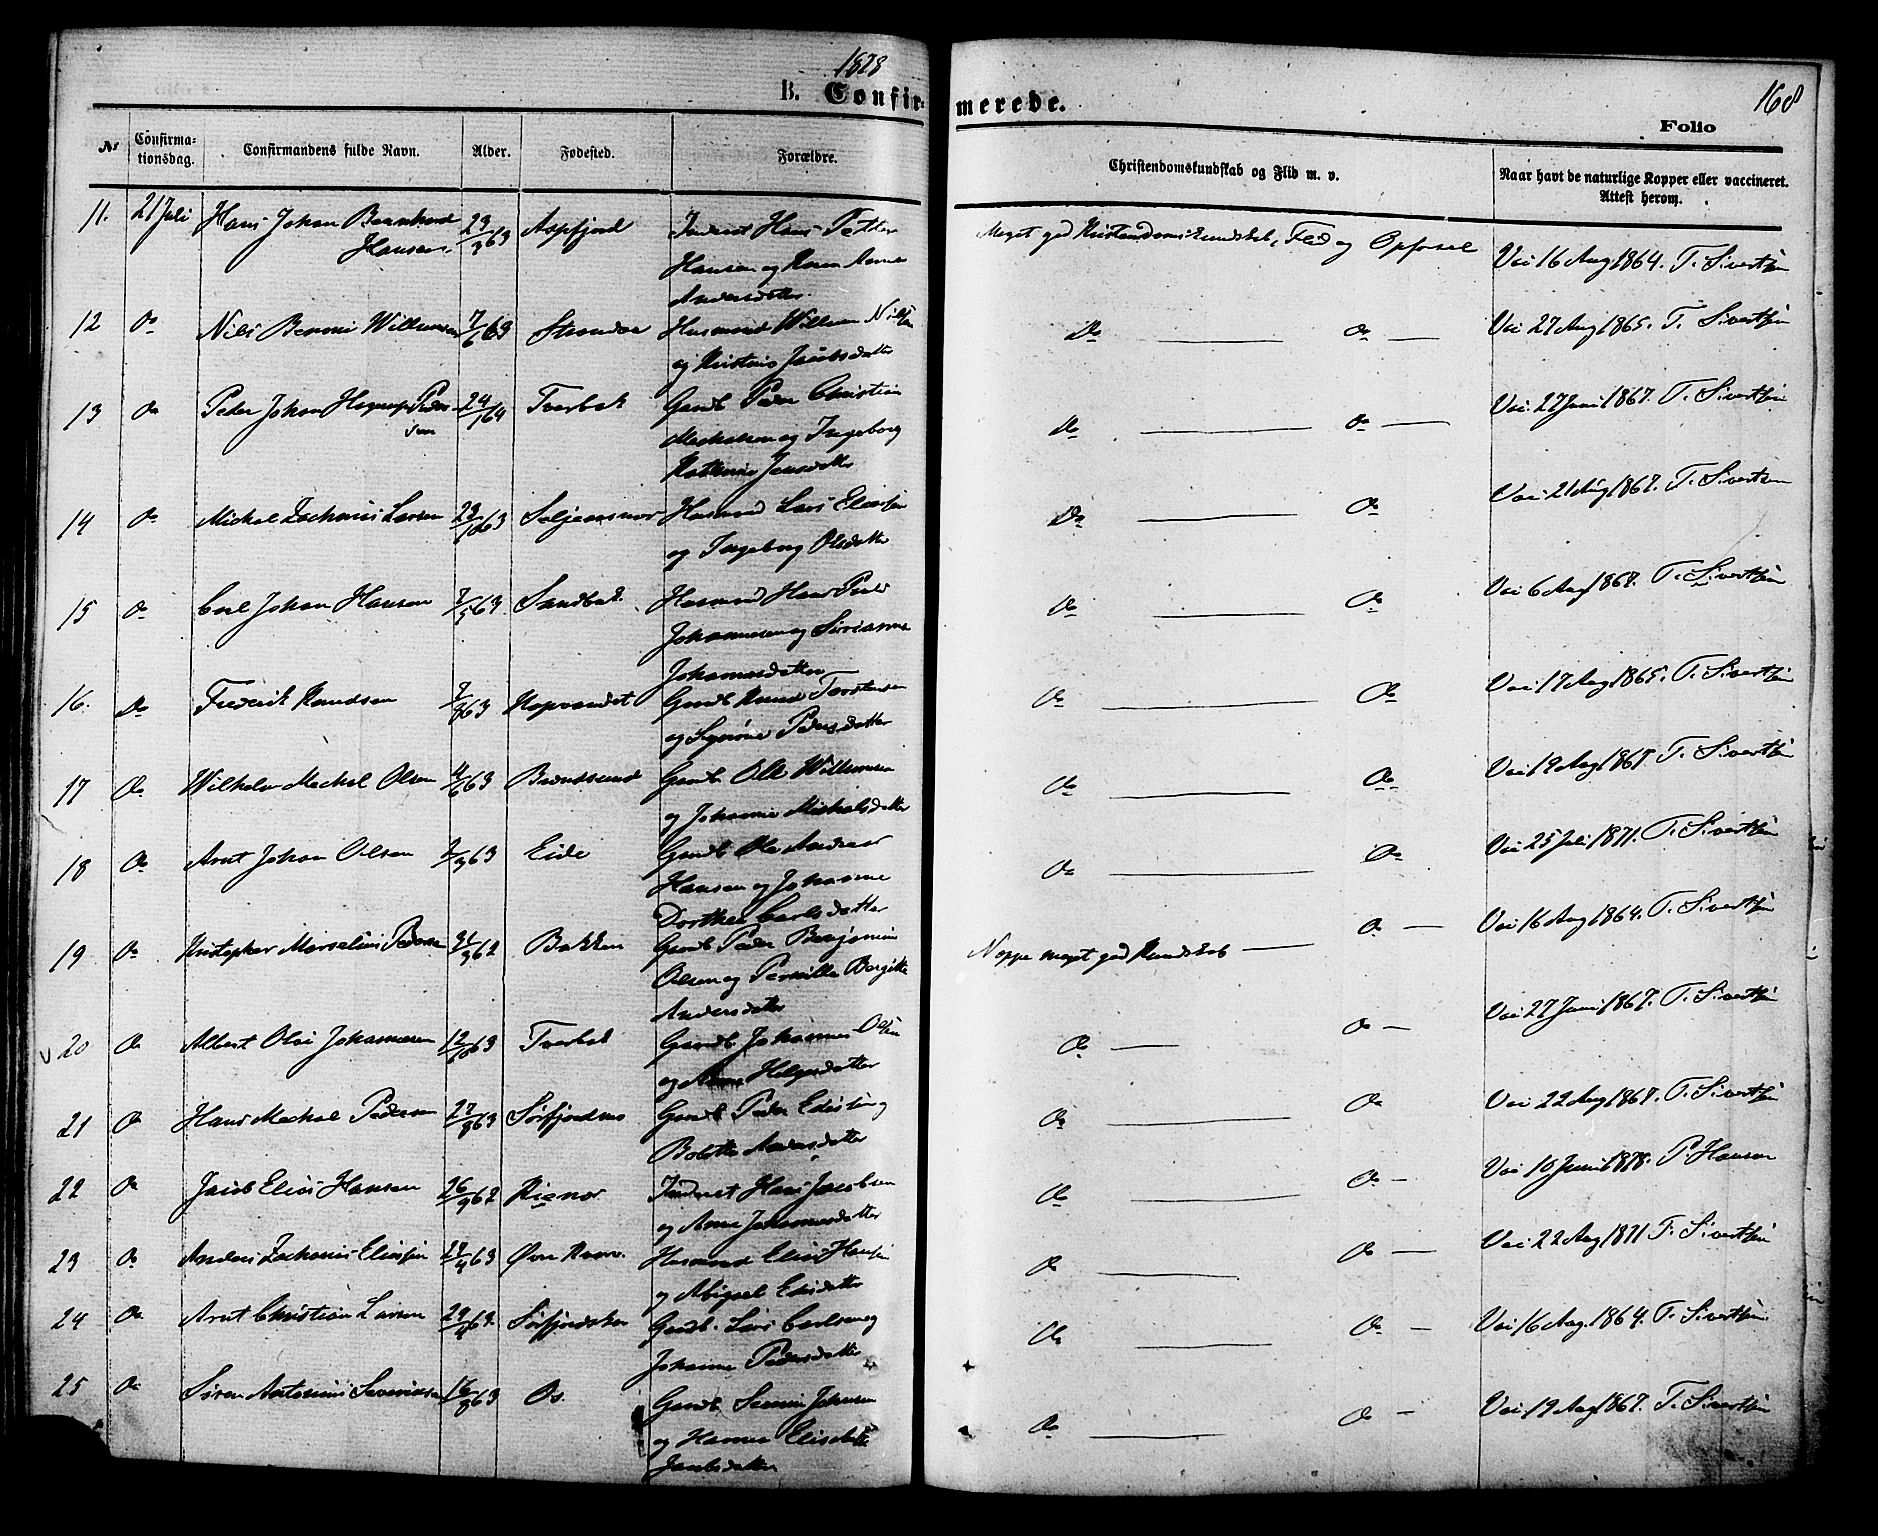 1878
168
B. Confirmerede.
Folio
No
Confirmationsdag.
Confirmandens fulde Navn.
Alder.
Fødested.
Forældre.
Christendomskundskab og Flid m. v.
Naar havt de naturlige Kopper eller vaccineret. Attest herom.
11. 21 Juli Hans Johan Hansen 23/3 63 Aspfjord Inderst Hans Petter Meget god Kristendomskundskab, Flid og Opførsel Vac 16 Aug 1864. T. Sivertsen
Hansen og Karen
Andersdatter
12 Do Nils Willumsen 7/6 63 Strandaa Husmand Willum Nilsen Do Do Vac 27 Aug 1865. T. Sivertsen
og Kristine Jacobsdatter
13 Do Peder Johan Pedersen 24/1 64 Tverbak Gaardb Peder Christian Do Do Vac. 27 Juni 1867. T. Sivertsen
og Ingeborg
Jensdatter
14 Do Mickal Zacharias Larsen 63 Husmand Lars Eliassen Do Do Vac 21 Aug 1867. T. Sivertsen
og Ingeborg Olsdatter
15 Do Carl Johan Hansen 7/5 63 Sandbak Husmand Hans Peder Do Do Vac 6 Aug 1867. T. Sivertsen
Johannesen og
Johannesdatter
16. Do Frederik Knudsen 63 Kopvandet Gaardb Knud Torstensen Do Do Vac 17 Aug 1865. T. Sivertsen
og Pedersdatter
17 Do Wilhelm Meckal Olsen 4/6 63 Gaardb Ole Willumsen Do Do Vac 19 Aug 1867 T. Sivertsen
og Johanna Mickalsdatter
18 Do Arnt Johan Olsen 2/3 63 Eide Gaardb Ole Andreas Do Do Vac 25 Juli 1871. T. Sivertsen
Hansen og Johanne
Dorthea Carlsdatter
19 Do Kristopher Marselius Pedersen 62 Bakken Gaardb Peder Benjamin Noppe meget god Kundskab Do Vac 16 Aug 1864. T. Sivertsen
Olsen og Pernille Bergitte
Andersdatter
20 Do Albert Olai Johannesen 12/6 63 Tverbak Gaardb Johannes Olsen Do Do Vac 27 Juni 1867. T. Sivertsen
og Anne Helgesdatter
21 Do Hans Meckal Pedersen 27/8 63 Sørfjordmo Gaardb Peder Do Do Vac 22 Aug 1867. T. Sivertsen
Andersdatter
22 Do Jacob Elias Hansen 26/9 62 Inderst Hans Jacobsen Do Do Vac 10 Juni 1878. P. Hansen
og Anne Johannesdatter
23 Do Anders Zacharias Eliassen 63 Husmand Elias Hansen Do Do Vac 22 Aug 1871 T. Sivertsen
og Abigael
24 Do Arnt Christian Larsen Gaardb. Lars Carlsen og Do Do Vac 16 Aug. 1864. T. Sivertsen
Johanna Pedersdatter
25 Do Søren Antonius Severinsen 16/8 63 Os. Gaardb Johnsen Do Do Vac 19 Aug 1867. T. Sivertsen
og Hanna Elisabeth
Jacobsdatter